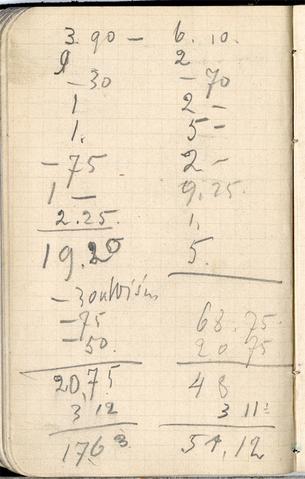 3.90 –
9
– 30
1
1.
– 75
1 –
2.25.
19.20
– 30
– 75
– 50.
20,75
3 12
176 3
6.10.
2
– 70
2 –
5 –
2 –
9.25.
1.
5.
68.75
20 75
48
3 11
51,12